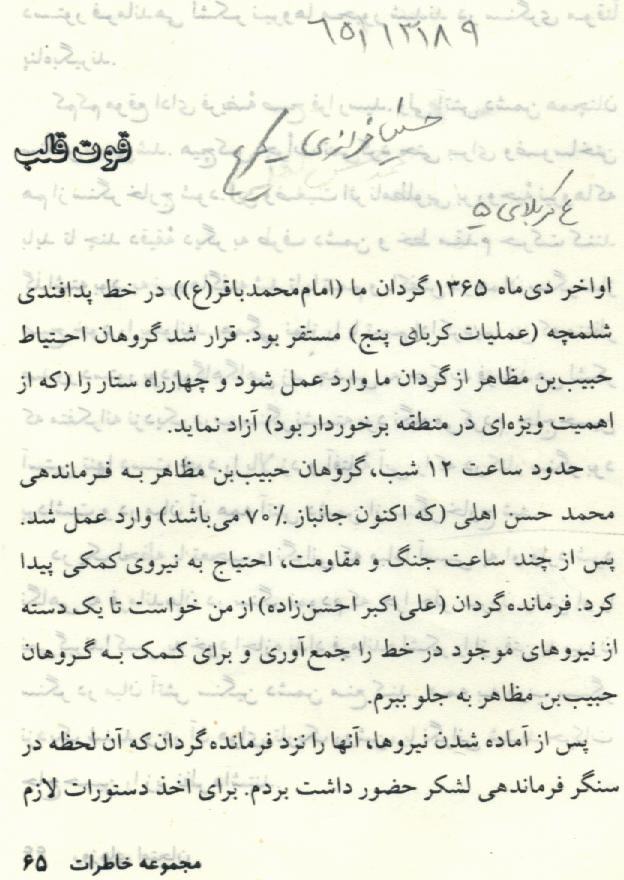 ۶۵/۱۳۱۸۹
قوت قلب
ع کربلای ۵
اواخر دی‌ماه ۱۳۶۵ گردان ما (امام‌محمدباقر(ع)) در خط پدافندی
شلمچه (عملیات کربای پنج) مستقر بود. قرار شد گروهان احتیاط
حبیب‌بن مظاهر از گردان ما وارد عمل شود و چهارراه ستار را (که از
اهمیت ویژه‌ای در منطقه برخوردار بود) آزاد نماید.
حدود ساعت ۱۲ شب، گروهان حبیب‌بن مظاهر به فرماندهی
محمد حسن اهلی (که اکنون جانباز ۷۰٪ می‌باشد) وارد عمل شد.
پس از چند ساعت جنگ و مقاومت، احتیاج به نیروی کمکی پیدا
کرد. فرمانده گردان (علی‌اکبر احسن‌زاده) از من خواست تا یک دسته
از نیروهای موجود در خط را جمع‌آوری و برای کمک به گروهان
حبیب‌بن مظاهر به جلو ببرم.
پس از آماده شدن نیروها، آنها را نزد فرمانده گردان که آن لحظه در
سنگر فرماندهی لشکر حضور داشت بردم. برای اخذ دستورات لازم
مجموعه خاطرات ۶۵